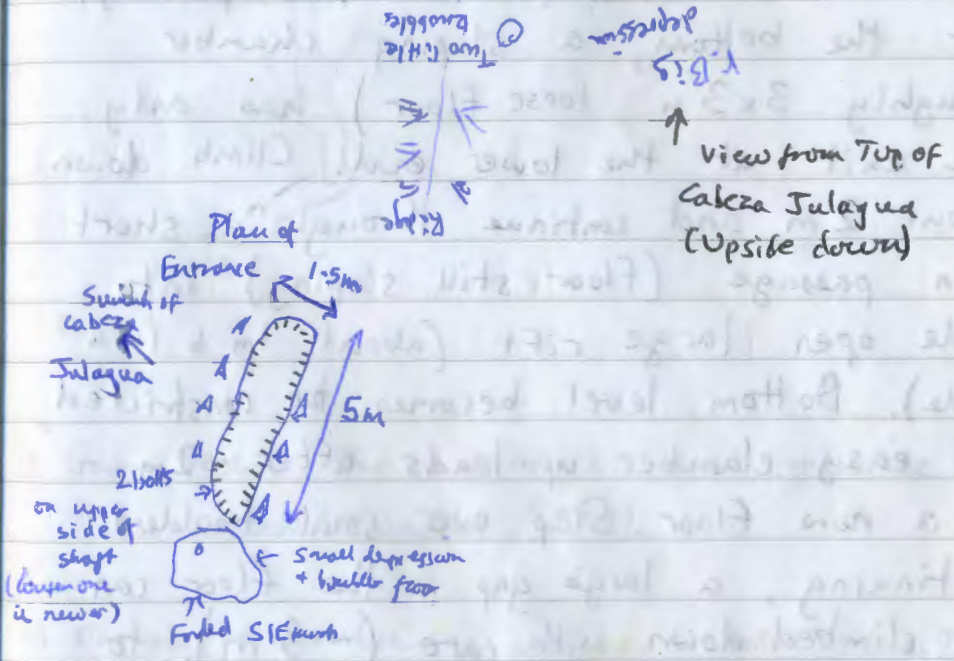 Two little
knobbles
Ridge
V. Big
depression
View from Top of
Cabeza Julagua
(Upside down)
Plan of
Entrance
1.5m
Summit of
Cabeza
Julagua
5m
2 bolts
on upper
side of
shaft
(lower one
is newer)
Small depression
+ boulder floor